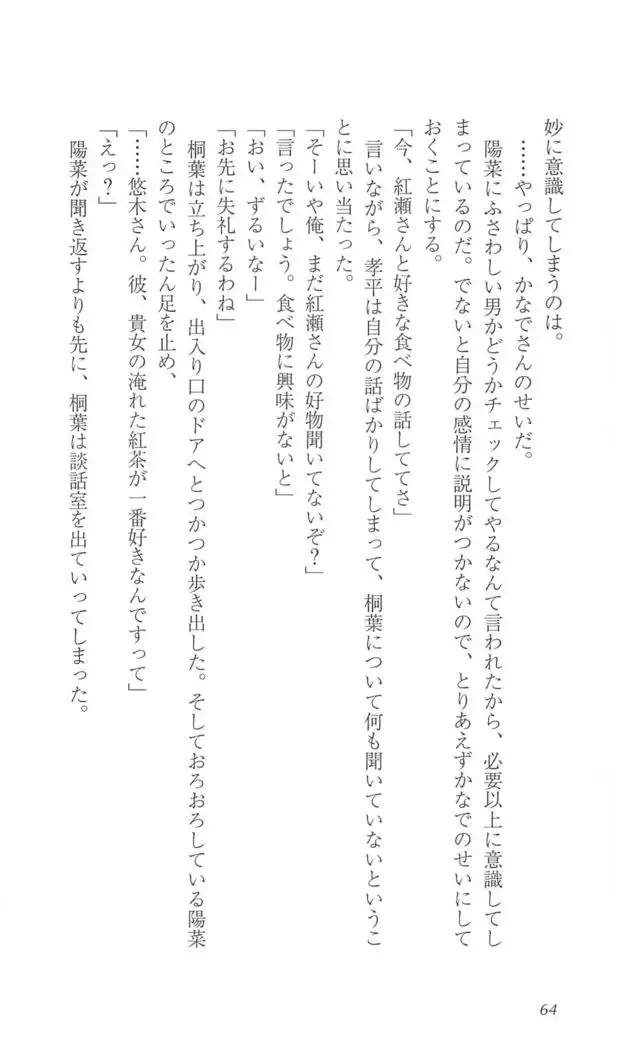 妙に意識してしまうのは。
……やっぱり、かなでさんのせいだ。
陽菜にふさわしい男かどうかチェックしてやるなんて言われたから、必要以上に意識してし
まっているのだ。でないと自分の感情に説明がつかないので、とりあえずかなでのせいにして
おくことにする。
「今、紅瀬さんと好きな食べ物の話しててさ」
言いながら、孝平は自分の話ばかりしてしまって、桐葉について何も聞いていないというこ
とに思い当たった。
「そーいや俺、まだ紅瀬さんの好物聞いてないぞ？」
「言ったでしょう。食べ物に興味がないと」
「おい、ずるいなー」
「お先に失礼するわね」
桐葉は立ち上がり、出入り口のドアへとつかつか歩き出した。そしておろおろしている陽菜
のところでいったん足を止め、
「……悠木さん。彼、貴女の淹れた紅茶が一番好きなんですって」
「えっ？」
陽菜が聞き返すよりも先に、桐葉は談話室を出ていってしまった。
64